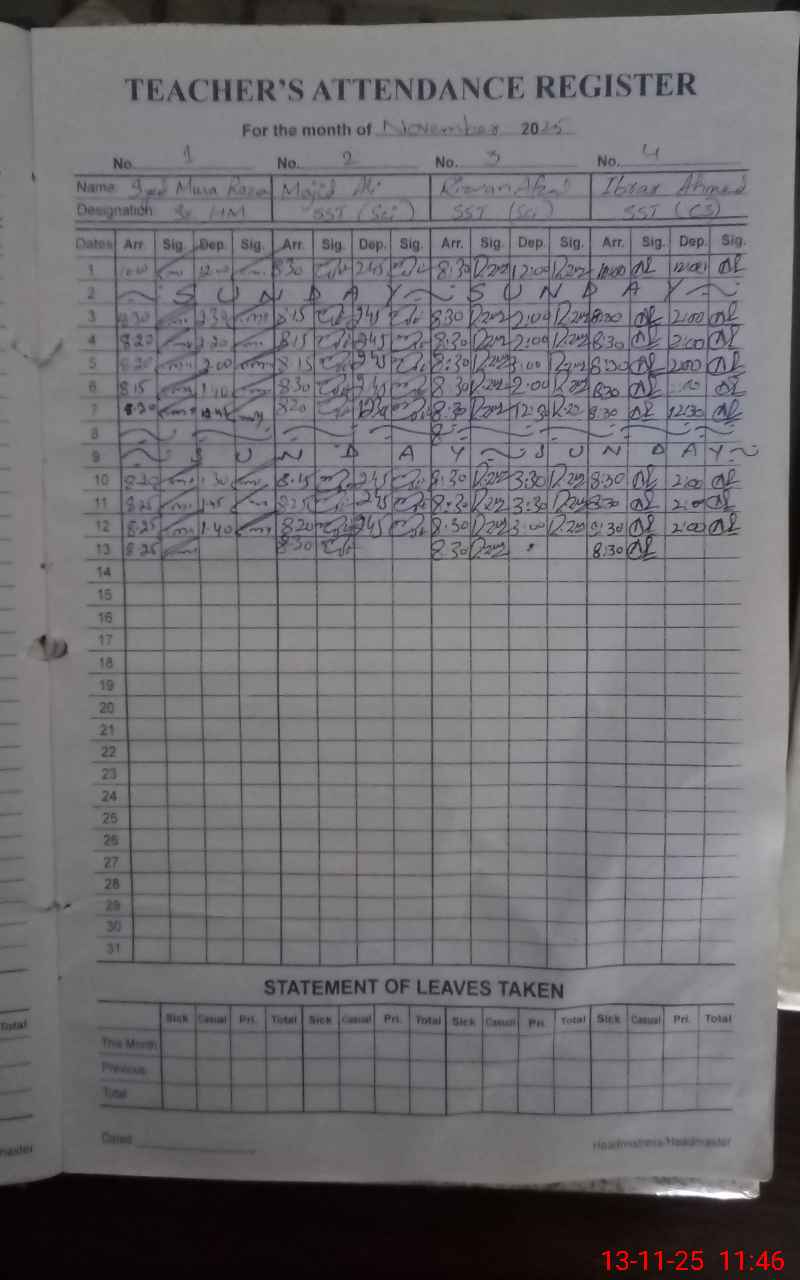 TEACHER'S ATTENDANCE REGISTER
For the month of November 2025
No. 1 No. 2 No. 3 No. 4
Name Majid Ali Rizwan Afzal Ibrar Ahmed
Designation HM SST (Sci) SST (Sci) SST (CS)
Dates Arr. Sig. Dep. Sig. Arr. Sig. Dep. Sig. Arr. Sig. Dep. Sig. Arr. Sig. Dep. Sig.
1 10:00 12:00 8:30 2:45 8:30 12:00 12:00
2 S U N D A Y S U N D A Y
3 8:30 1:30 8:15 2:45 8:30 2:00 8:30 2:00
4 8:20 1:20 8:15 2:45 8:30 2:00 8:30 2:00
5 8:20 2:00 8:15 2:45 8:30 3:00 8:30 2:00
6 8:15 1:10 8:30 2:45 8:30 2:00 8:30
7 8:30 8:20 8:30 12:30 8:30 12:30
8
9 S U N D A Y S U N D A Y
10 8:20 1:30 8:15 2:45 8:30 3:30 8:30 2:00
11 8:25 1:45 8:25 2:45 8:30 3:30 8:30 2:00
12 8:25 1:40 8:20 2:45 8:30 3:00 8:30 2:00
13 8:25 8:30 8:30 8:30
14
15
16
17
18
19
20
21
22
23
24
25
26
27
28
29
30
31
STATEMENT OF LEAVES TAKEN
Sick Casual Pri. Total Sick Casual Pri. Total Sick Casual Pri. Total Sick Casual Pri. Total
This Month
Previous
Total
Dated Headmistress/Headmaster
Total
master
13-11-25 11:46